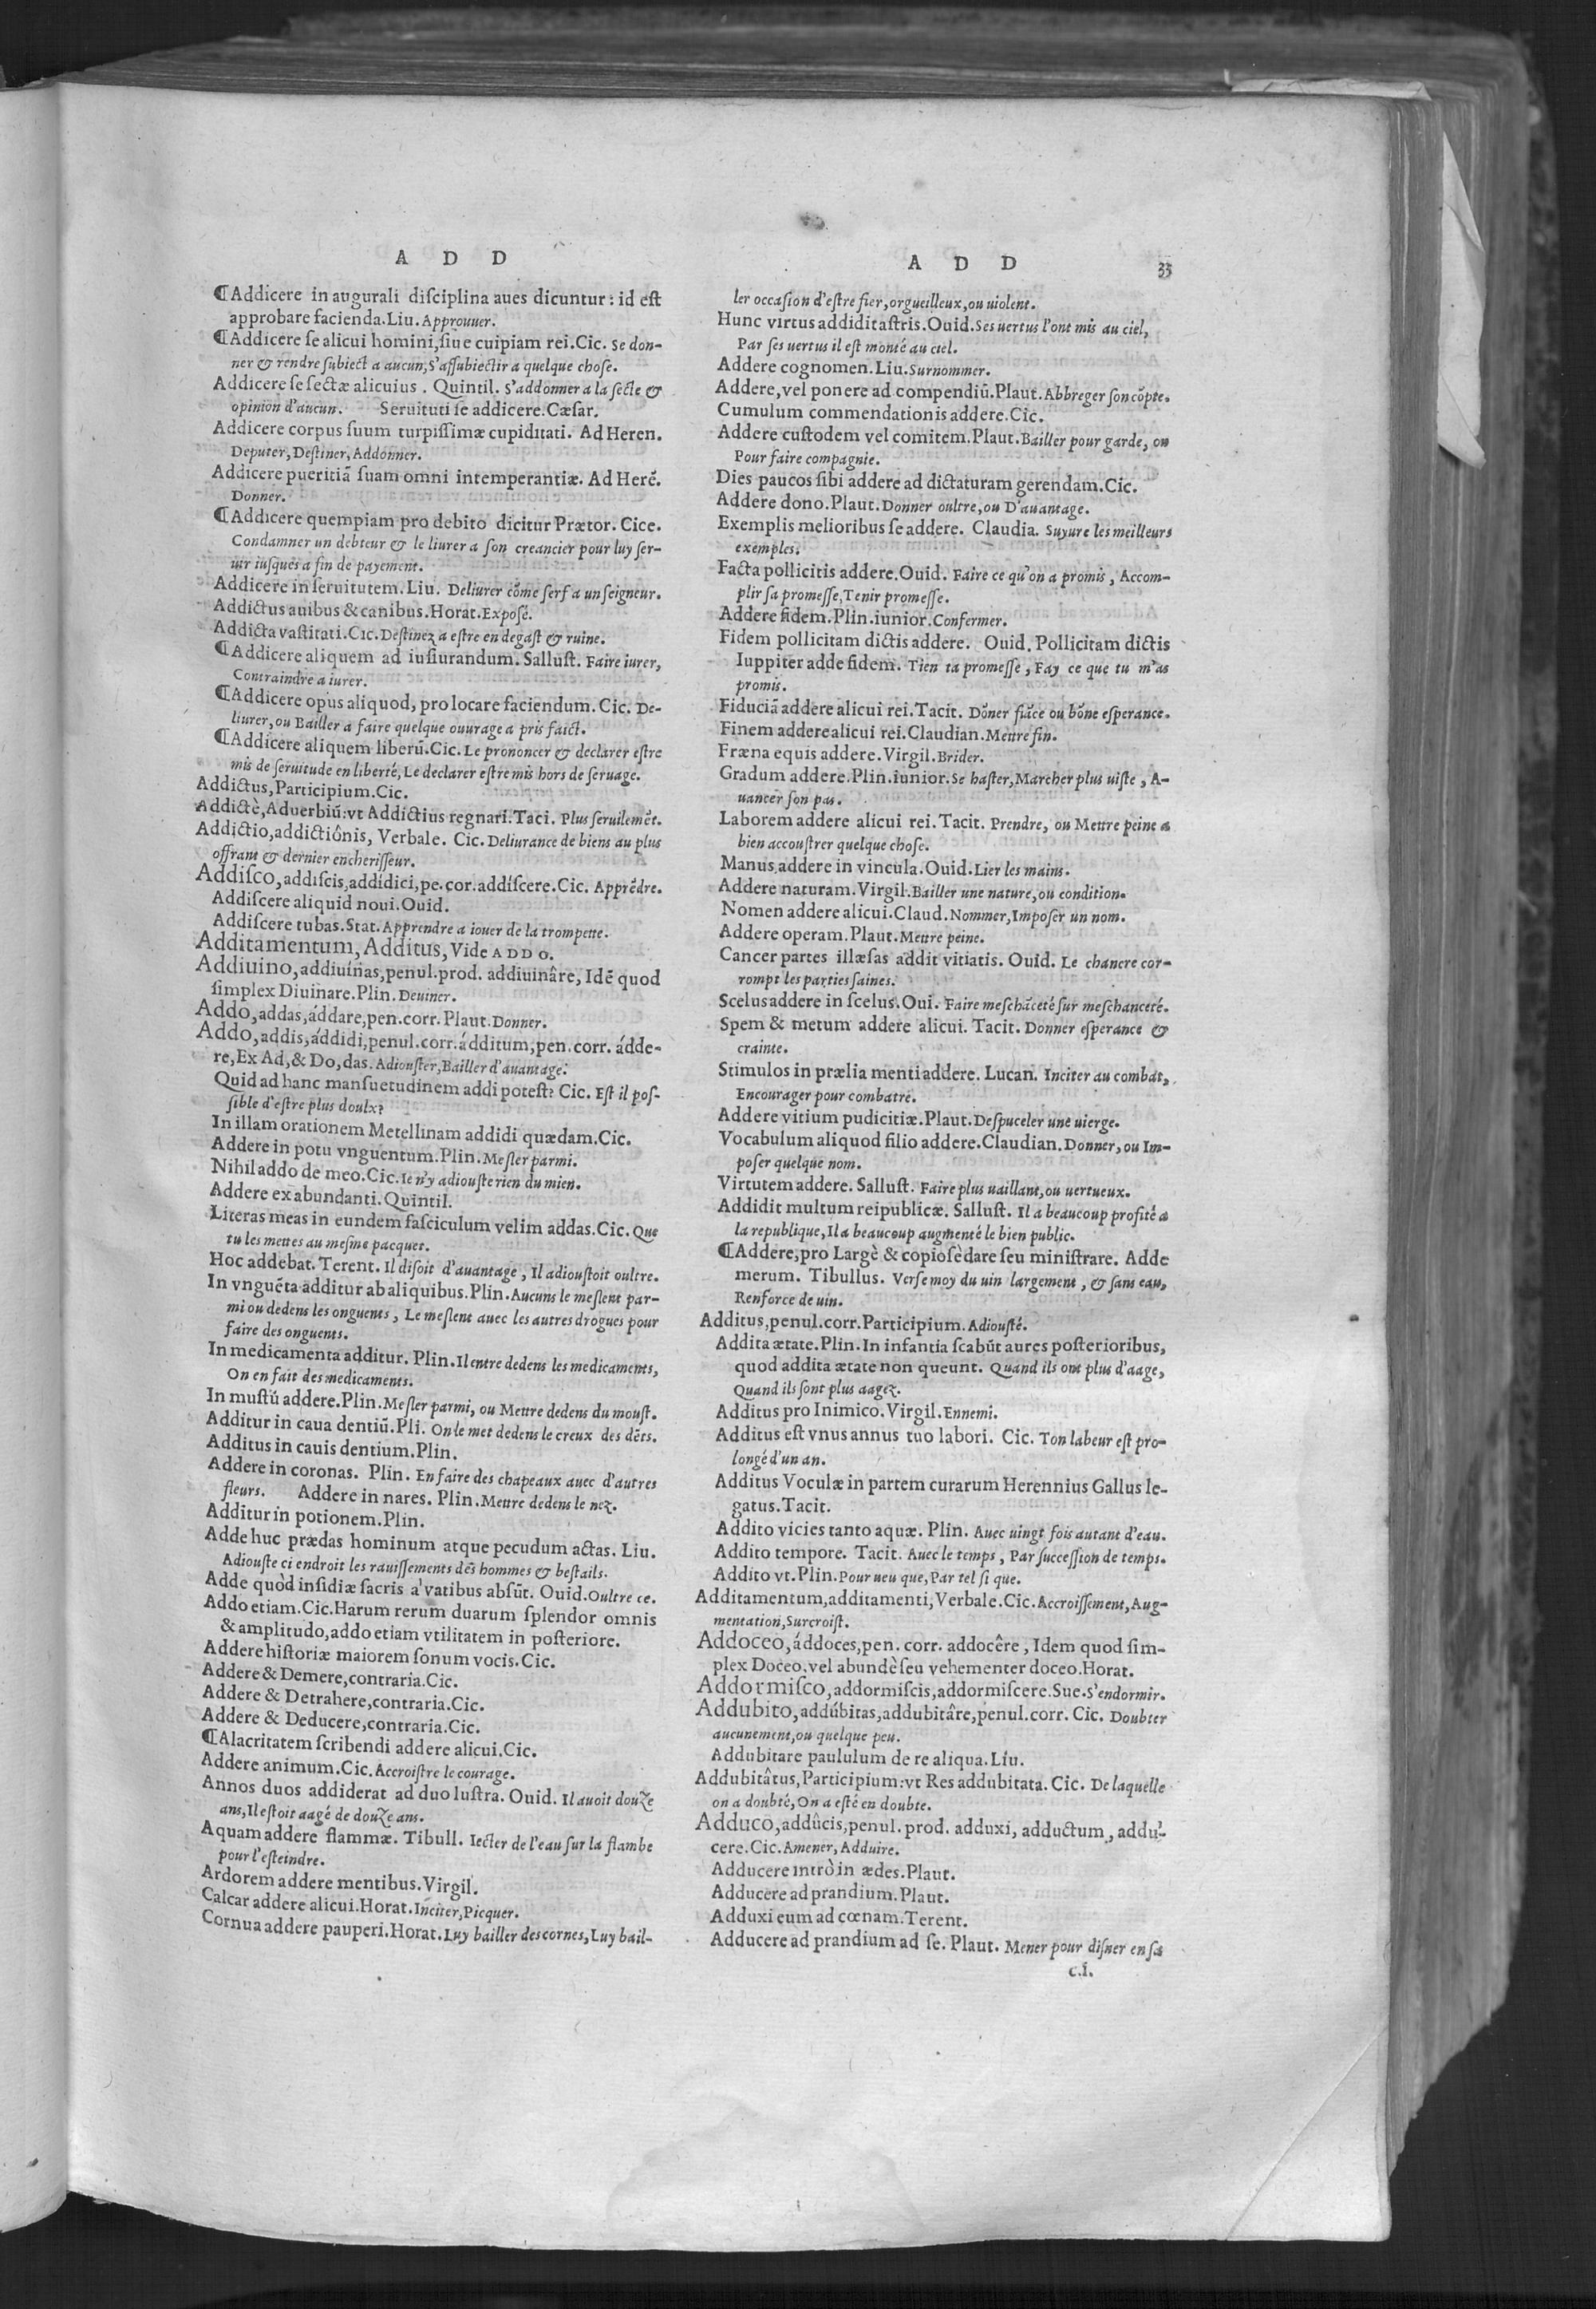 A D D
¶Addicere in augurali diſciplina aues dicuntur: id eſt
approbare facienda.Liu.Approuuer.
¶Addicere ſe alicui homini,ſiue cuipiam rei.Cic. Se don-
ner & rendre ſubiect a aucun,S'aſſubiectir a quelque choſe.
Addicere ſe ſectæ alicuius . Quintil. S'addonner a la ſecte &
opinion d'aucun. Seruituti ſe addicere.Cæſar.
Addicere corpus ſuum turpiſſimæ cupiditati. Ad Heren.
Deputer,Deſtiner,Addonner.
Addicere pueritiā ſuam omni intemperantiæ. Ad Herē.
Donner.
¶Addicere quempiam pro debito dicitur Prætor. Cice.
Condamner un debteur & le liurer a ſon creancier pour luy ſer-
uir iuſques a fin de payement.
Addicere in ſeruitutem. Liu. Deliurer cōme ſerf a un ſeigneur.
Addictus auibus & canibus.Horat.Expoſé.
Addicta vaſtitati.Cic.Deſtinez a eſtre en degaſt & ruine.
¶Addicere aliquem ad iuſiurandum. Salluſt. Faire iurer,
Contraindre a iurer.
¶Addicere opus aliquod, pro locare faciendum. Cic. De-
liurer,ou Bailler a faire quelque ouurage a pris faict.
¶Addicere aliquem liberū.Cic. Le prononcer & declarer eſtre
mis de ſeruitude en liberté,Le declarer eſtre mis hors de ſeruage.
Addictus,Participium.Cic.
Addictè,Aduerbiū:vt Addictius regnari.Taci. Plus ſeruilemēt.
Addictio,addictiônis, Verbale. Cic. Deliurance de biens au plus
offrant & dernier encheriſſeur.
Addiſco,addiſcis,addídici,pe.cor.addíſcere.Cic. Apprēdre.
Addiſcere aliquid noui.Ouid.
Addiſcere tubas.Stat.Apprendre a iouer de la trompette.
Additamentum, Additus, Vide A D D O.
Addiuino,addiuínas,penul.prod. addiuinâre, Idē quod
ſimplex Diuinare.Plin.Deuiner.
Addo,addas,áddare,pen.corr. Plaut.Donner.
Addo,addis,áddidi,penul.corr.ádditum,pen.corr. ádde-
re,Ex Ad,& Do,das.Adiouſter,Bailler d'auantage.
Quid ad hanc manſuetudinem addi poteſt? Cic. Eſt il poſ-
ſible d'eſtre plus doulx?
In illam orationem Metellinam addidi quædam.Cic.
Addere in potu vnguentum.Plin.Meſler parmi.
Nihil addo de meo.Cic.Ie n'y adiouſte rien du mien.
Addere ex abundanti.Quintil.
Literas meas in eundem faſciculum velim addas.Cic. Que
tu les mettes au meſme pacquet.
Hoc addebat. Terent. Il diſoit d'auantage, Il adiouſtoit oultre.
In vnguēta additur ab aliquibus.Plin. Aucuns le meſlent par-
mi ou dedens les onguents, Le meſlent auec les autres drogues pour
faire des onguents.
In medicamenta additur. Plin.Il entre dedens les medicaments,
On en fait des medicaments.
In muſtū addere.Plin.Meſler parmi, ou Mettre dedens du mouſt.
Additur in caua dentiū.Pli. On le met dedens le creux des dēts.
Additus in cauis dentium.Plin.
Addere in coronas. Plin. En faire des chapeaux auec d'autres
fleurs. Addere in nares. Plin.Mettre dedens le nez.
Additur in potionem.Plin.
Adde huc prædas hominum atque pecudum actas. Liu.
Adiouſte ci endroit les rauiſſements des hommes & beſtails.
Adde quòd inſidiæ ſacris à vatibus abſūt. Ouid.Oultre ce.
Addo etiam.Cic.Harum rerum duarum ſplendor omnis
& amplitudo,addo etiam vtilitatem in poſteriore.
Addere hiſtoriæ maiorem ſonum vocis.Cic.
Addere & Demere,contraria.Cic.
Addere & Detrahere,contraria.Cic.
Addere & Deducere,contraria.Cic.
¶Alacritatem ſcribendi addere alicui.Cic.
Addere animum.Cic.Accroiſtre le courage.
Annos duos addiderat ad duo luſtra. Ouid. Il auoit douze
ans,Il eſtoit aagé de douze ans.
Aquam addere flammæ. Tibull. Iecter de l'eau ſur la flambe
pour l'eſteindre.
Ardorem addere mentibus.Virgil.
Calcar addere alicui.Horat.Inciter,Picquer.
Cornua addere pauperi.Horat.Luy bailler des cornes,Luy bail-
A D D 33
ler occaſion d'eſtre fier,orgueilleux,ou uiolent.
Hunc virtus addidit aſtris.Ouid.Ses uertus l'ont mis au ciel,
Par ſes uertus il eſt monté au ciel.
Addere cognomen.Liu.Surnommer.
Addere,vel ponere ad compendiū.Plaut.Abbreger ſon cōpte.
Cumulum commendationis addere.Cic.
Addere cuſtodem vel comitem.Plaut.Bailler pour garde, ou
Pour faire compagnie.
Dies paucos ſibi addere ad dictaturam gerendam.Cic.
Addere dono.Plaut.Donner oultre,ou D'auantage.
Exemplis melioribus ſe addere. Claudia. Suyure les meilleurs
exemples.
Facta pollicitis addere.Ouid. Faire ce qu'on a promis, Accom-
plir ſa promeſſe,Tenir promeſſe.
Addere fidem.Plin.iunior.Confermer.
Fidem pollicitam dictis addere. Ouid. Pollicitam dictis
Iuppiter adde fidem. Tien ta promeſſe, Fay ce que tu m'as
promis.
Fiduciā addere alicui rei.Tacit. Dōner fiāce ou bōne eſperance.
Finem addere alicui rei.Claudian.Mettre fin.
Fræna equis addere.Virgil.Brider.
Gradum addere.Plin.iunior.Se haſter,Marcher plus uiſte, A-
uancer ſon pas.
Laborem addere alicui rei. Tacit. Prendre, ou Mettre peine a
bien accouſtrer quelque choſe.
Manus addere in vincula.Ouid.Lier les mains.
Addere naturam.Virgil.Bailler une nature,ou condition.
Nomen addere alicui.Claud.Nommer,Impoſer un nom.
Addere operam.Plaut.Mettre peine.
Cancer partes illæſas addit vitiatis. Ouid. Le chancre cor-
rompt les parties ſaines.
Scelus addere in ſcelus.Oui. Faire meſchāceté ſur meſchanceté.
Spem & metum addere alicui. Tacit. Donner eſperance &
crainte.
Stimulos in prælia menti addere. Lucan. Inciter au combat,
Encourager pour combatre.
Addere vitium pudicitiæ.Plaut.Deſpuceler une uierge.
Vocabulum aliquod filio addere.Claudian.Donner, ou Im-
poſer quelque nom.
Virtutem addere. Salluſt. Faire plus uaillant,ou uertueux.
Addidit multum reipublicæ. Salluſt. Il a beaucoup profité a
la republique,Il a beaucoup augmenté le bien public.
¶Addere,pro Largè & copioſè dare ſeu miniſtrare. Adde
merum. Tibullus. Verſe moy du uin largement, & ſans eau,
Renforce de uin.
Additus,penul.corr.Participium.Adiouſté.
Addita ætate.Plin.In infantia ſcabūt aures poſterioribus,
quod addita ætate non queunt. Quand ils ont plus d'aage,
Quand ils ſont plus aagez.
Additus pro Inimico.Virgil.Ennemi.
Additus eſt vnus annus tuo labori. Cic. Ton labeur eſt pro-
longé d'un an.
Additus Voculæ in partem curarum Herennius Gallus le-
gatus.Tacit.
Addito vicies tanto aquæ. Plin. Auec uingt fois autant d'eau.
Addito tempore. Tacit. Auec le temps, Par ſucceſſion de temps.
Addito vt.Plin.Pour ueu que,Par tel ſi que.
Additamentum,additamenti,Verbale.Cic.Accroiſſement,Aug-
mentation,Surcroiſt.
Addoceo,áddoces,pen. corr. addocêre, Idem quod ſim-
plex Doceo,vel abundè ſeu vehementer doceo.Horat.
Addormiſco,addormiſcis,addormiſcere.Sue.S'endormir.
Addubito,addúbitas,addubitâre,penul.corr. Cic. Doubter
aucunement,ou quelque peu.
Addubitare paululum de re aliqua.Liu.
Addubitâtus,Participium:vt Res addubitata. Cic. De laquelle
on a doubté,On a eſté en doubte.
Adduco,addûcis,penul. prod. adduxi, adductum, addú-
cere.Cic.Amener,Adduire.
Adducere intrò in ædes.Plaut.
Adducere ad prandium.Plaut.
Adduxi eum ad cœnam.Terent.
Adducere ad prandium ad ſe. Plaut. Mener pour diſner en ſa
c.i.